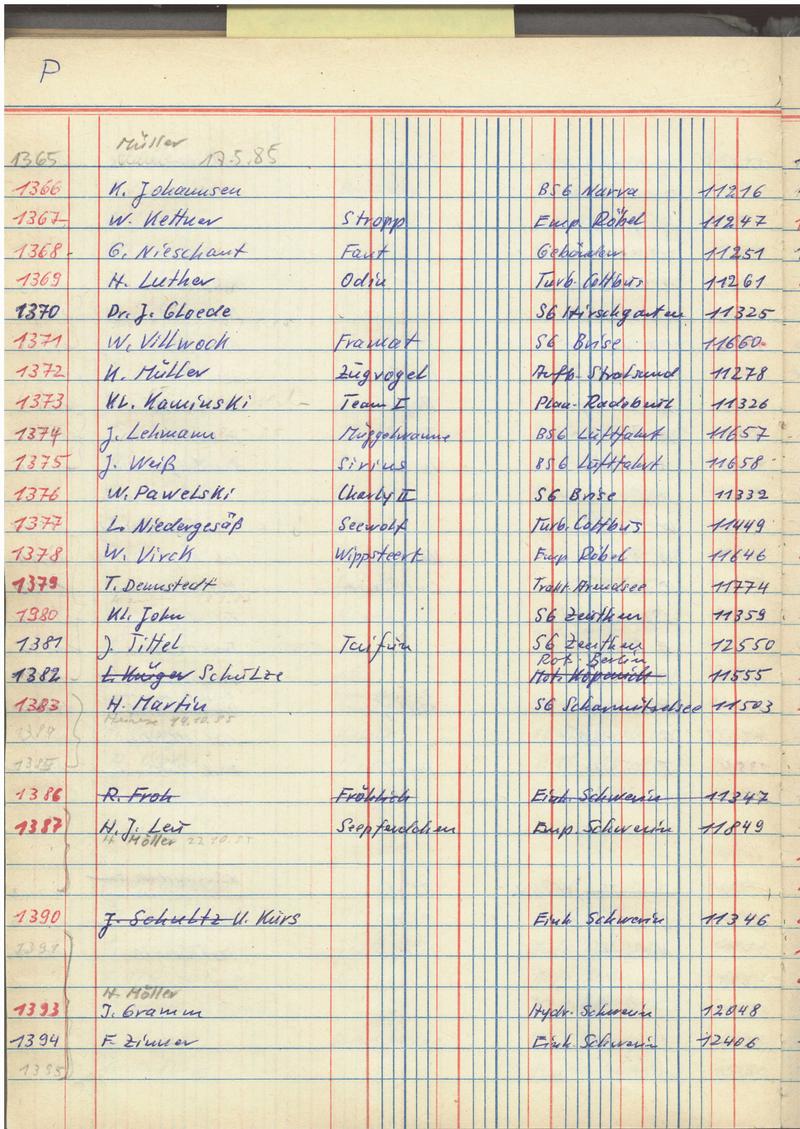 P
Müller
1365 17.5.85
1366 K. Johannsen BSG Narva 11216
1367 W. Kettner Stropp Emp. Röbel 11247
1368 G. Nieschant Faut 11251
1369 H. Luther Odin Turb. Cottbus 11261
1370 Dr. J. Gloede SG Hirschgarten 11325
1371 W. Villwock Framat SG Brise 11660
1372 K. Müller Zugvogel Aufb. Stralsund 11278
1373 Kl. Kaminski Team I Plan. Radebeul 11326
1374 J. Lehmann BSG Luftfahrt 11657
1375 J. Weiß Sirius BSG Luftfahrt 11658
1376 W. Pawelski Charly II SG Brise 11332
1377 L. Niedergesäß Seewolf Turb. Cottbus 11449
1378 W. Virck Wippsteert Emp Röbel 11646
1379 T. Dennstedt Trakt. Arendsee 11774
1980 Kl. John SG Zeuthen 11359
1381 J. Tittel Taifun SG Zeuthen 12550
Rot. Berlin
1382 L. Krüger Schulze Mot. Köpenick 11555
1383 H. Martin SG Scharmützelsee 11503
1384 14.10.85
1385
1386 R. Froh Fröhlich Einh. Schwerin 11347
1387 H. J. Leu Seepferdchen Emp. Schwerin 11849
H. Möller 22.10.85
1390 J. Schultz U. Kurs Einh. Schwerin 11346
1391
H. Möller
1393 J. Gramm Hydr. Schwerin 12048
1394 F. Zinner Einh. Schwerin 12406
1395